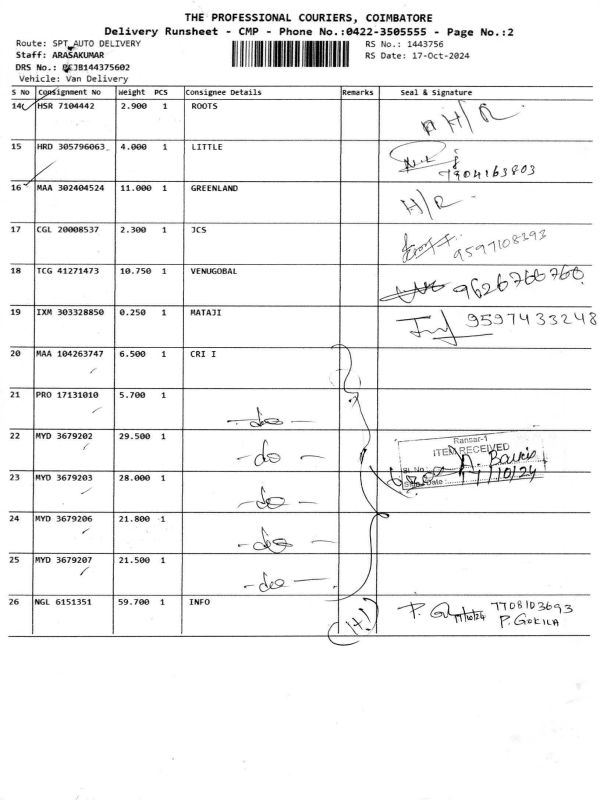 THE PROFESSIONAL COURIERS, COIMBATORE
Delivery Runsheet - CMP - Phone No.:0422-3505555 - Page No.:2
Route: SPT AUTO DELIVERY RS No.: 1443756
Staff: ARASAKUMAR RS Date: 17-Oct-2024
DRS No.: JB144375602
Vehicle: Van Delivery
S No Consignment No Weight PCS Consignee Details Remarks Seal & Signature
14 HSR 7104442 2.900 1 ROOTS H/R
15 HRD 305796063 4.000 1 LITTLE 7904163803
16 MAA 302404524 11.000 1 GREENLAND H/R
17 CGL 20008537 2.300 1 JCS 9597108393
18 TCG 41271473 10.750 1 VENUGOBAL 9626766760
19 IXM 303328850 0.250 1 MATAJI 9597433248
20 MAA 104263747 6.500 1 CRI I
21 PRO 17131010 5.700 1 -do-
22 MYD 3679202 29.500 1 -do-
Ransar-1
ITEM RECEIVED
Sl. No
Date
17/10/24
23 MYD 3679203 28.000 1 -do-
24 MYD 3679206 21.800 1 -do-
25 MYD 3679207 21.500 1 -do-
26 NGL 6151351 59.700 1 INFO 7708103693
17/10/24 P. GOKILA